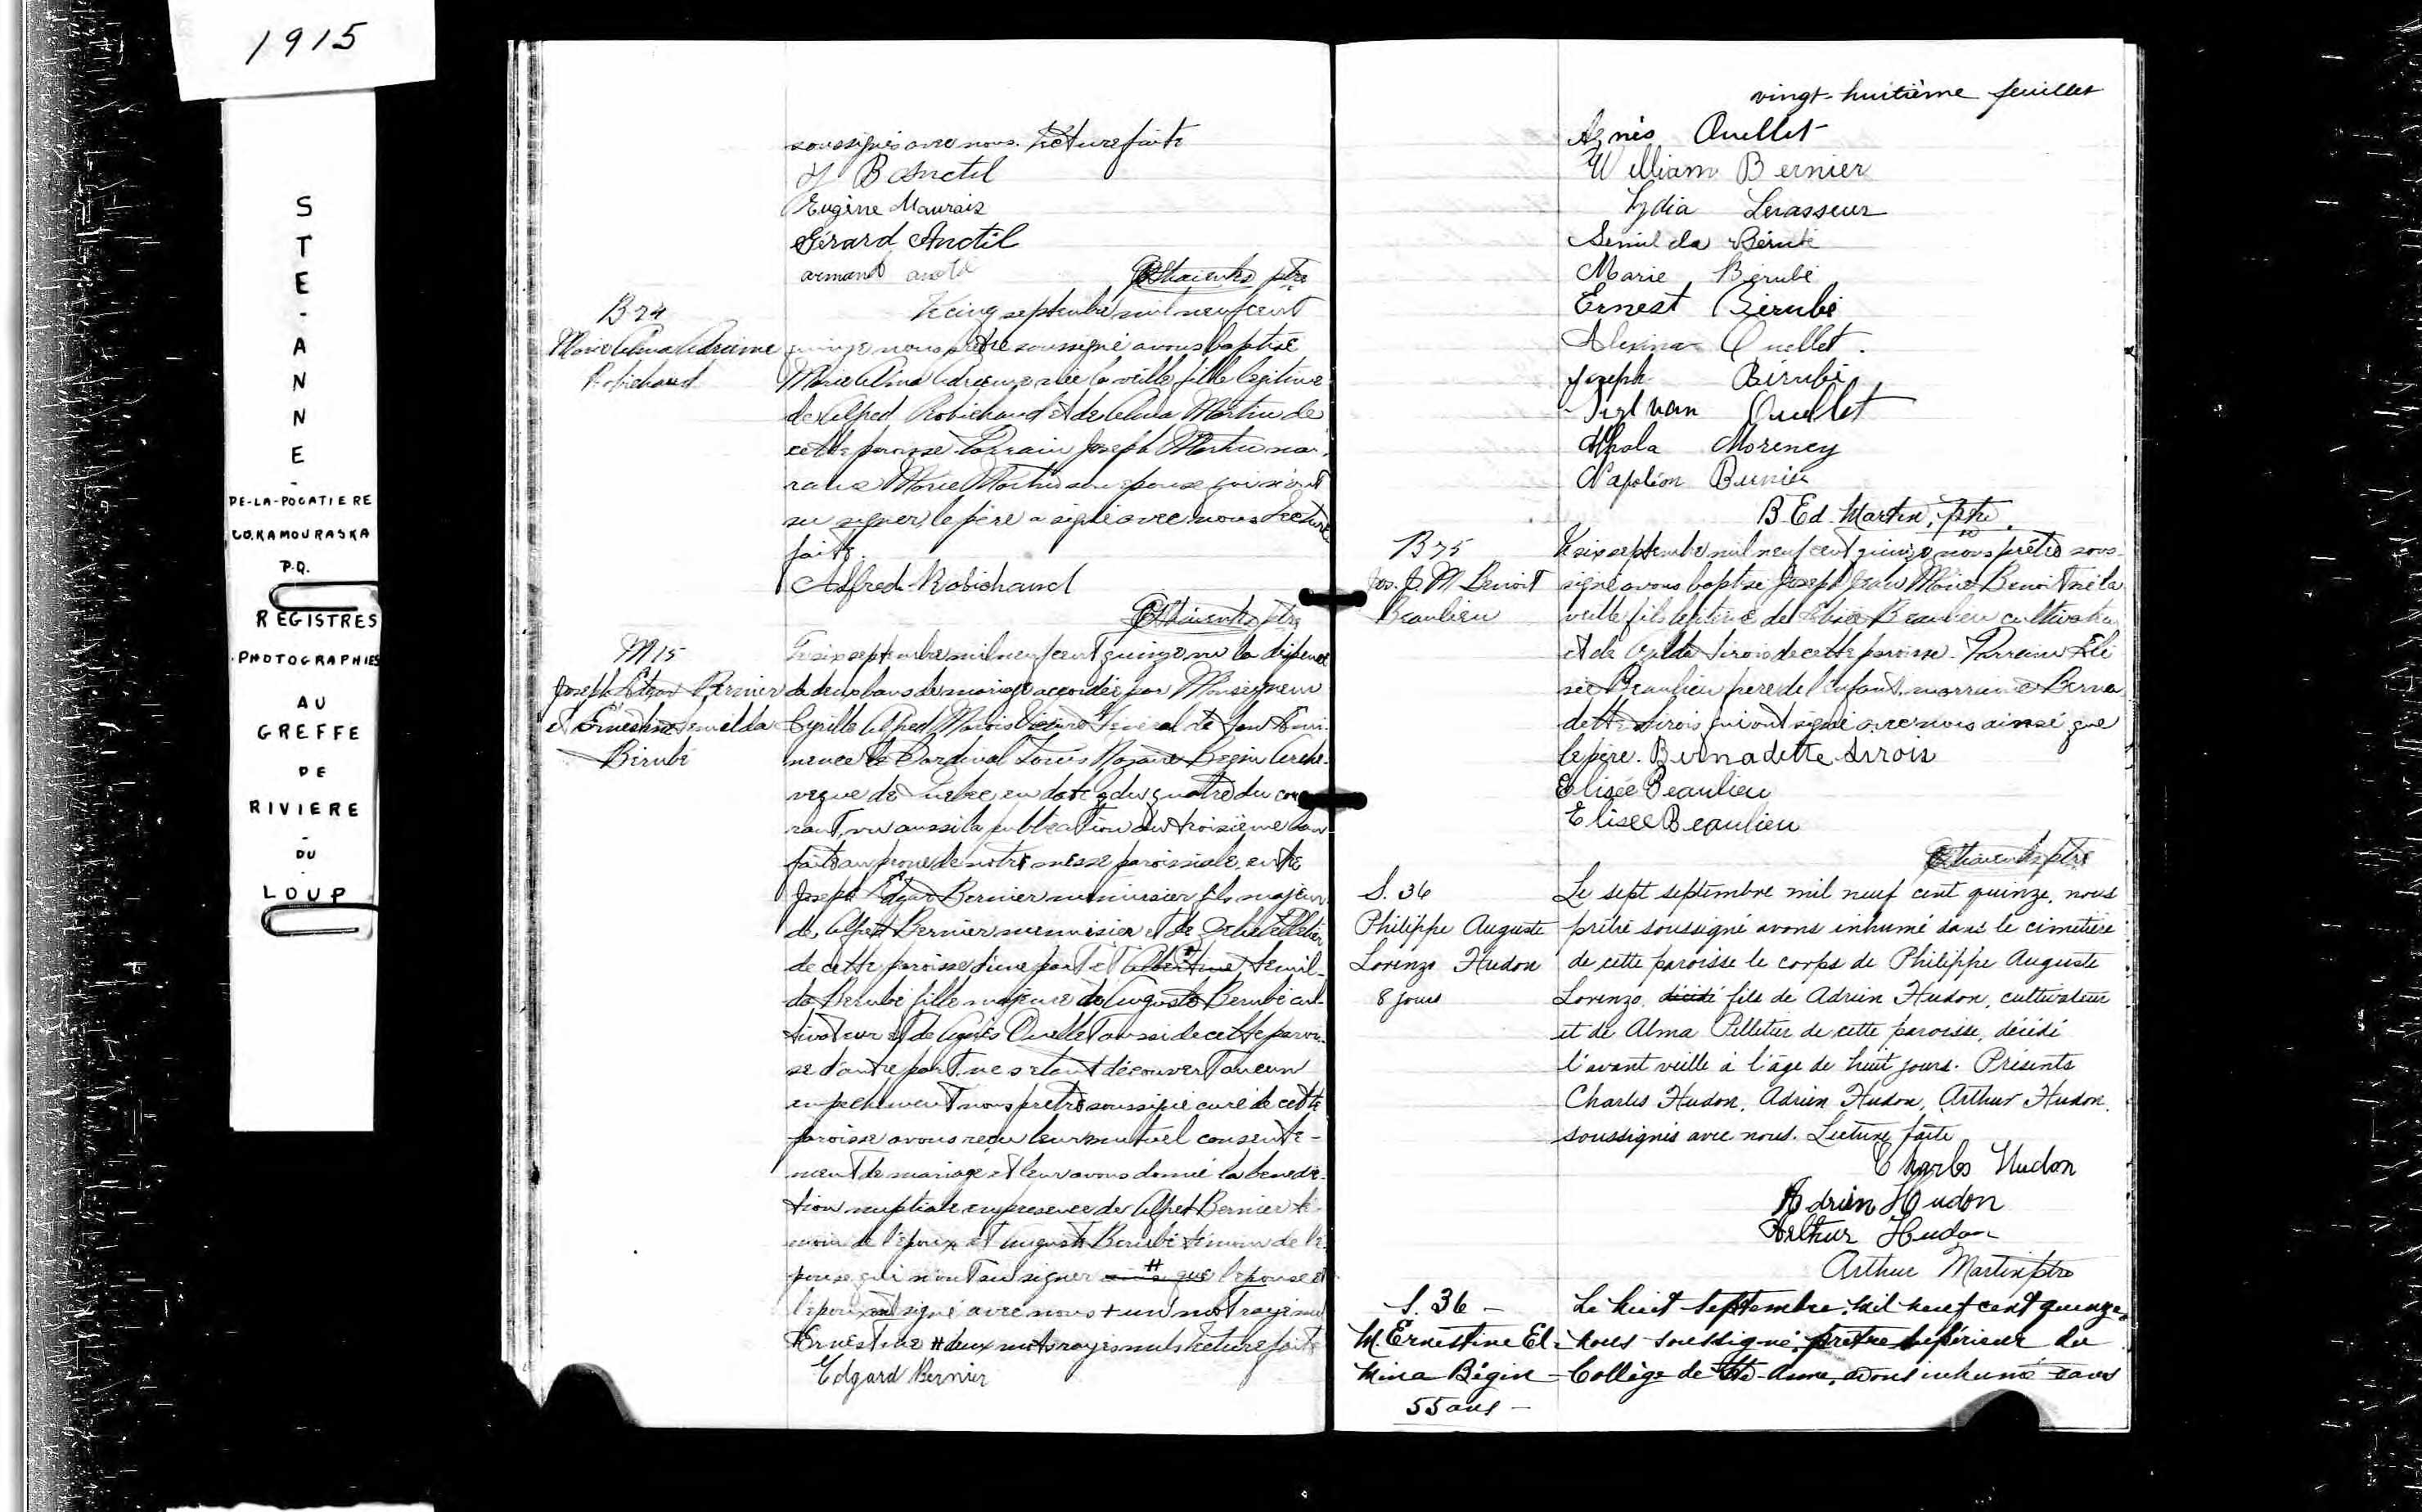 1915
STE-ANNE
-
DE-LA-POCATIERE
CO. KAMOURASKA
P.Q.
REGISTRES
PHOTOGRAPHIES
AU
GREFFE
DE
RIVIERE
-
DU
-
LOUP
soussignés avec nous. Lecture faite
J B Anctil
Eugène Maurais
Gérard Anctil
armand anctil
ptre
B 74
Marie Alma Adrienne
Robichaud
Le cinq septembre mil neuf cent
quinze nous prêtre soussigné avons baptisé
Marie Alma Adrienne née la veille fille légitime
de Alfred Robichaud et de Alma Martin de
cette paroisse Parrain Joseph Martin mar-
raine Marie Martin son épouse qui n'ont
su signer, le père a signé avec nous Lecture
faite.
Alfred Robichaud
ptre
M 15
Joseph Edgar Bernier
et Ernestine Semilda
Bérubé
Le six septembre mil neuf cent quinze vu la dispense
de deux bans de mariage accordée par Monseigneur
Cyrille Alfred Marois Vicaire Général de Son Emi-
nence le Cardinal Louis Nazaire Begin Arche-
vêque de Québec en date du quatre du cou-
rant, vu aussi la publication du troisième ban
faite au prône de notre messe paroissiale, entre
Joseph Edgar Bernier menuisier fils majeur
de Alfred Bernier menuisier et de Pelletier
de cette paroisse d'une part et Albertine + Semil-
da Berubé fille majeure de Auguste Berubé cul-
tivateur et de Agnès Ouellet aussi de cette parois-
se d'autre part, ne s'étant découvert aucun
empêchement nous prêtre soussigné curé de cette
paroisse avons reçu leur mutuel consente-
ment de mariage et leur avons donné la bénédic-
tion nuptiale en présence de Alfred Bernier té-
moin de l'époux et Auguste Berubé témoin de l'é-
pouse qui n'ont su signer ainsi que # l'épouse et
l'époux ont signé avec nous + un mot rayé nul
Ernestine # deux mots rayés nuls Lecture faite
Edgard Bernier
vingt-huitième feuillet
Agnès Ouellet
William Bernier
Lydia Levasseur
Semilda Bérubé
Marie Bérubé
Ernest Bérubé
Alexina Ouellet.
Joseph Bérubé
Ouellet
Morency
Napoléon Bernier
B. Ed. Martin, Ptre.
B 75
Jos. J. M Benoit
Beaulieu
Le six septembre mil neuf cent quinze nous prêtre sous-
signé avons baptisé Joseph Jean Marie Benoit né la
veille fils légitime de Elisée Beaulieu cultivateur
et de Sirois de cette paroisse. Parrain Eli
sée Beaulieu père de l'enfant, marraine Berna
dette Sirois qui ont signé avec nous ainsi que
le père. Bernadette Sirois
Elisée Beaulieu
Elisée Beaulieu
ptre
S. 36
Philippe Auguste
Lorenzo Hudon
8 jours
Le sept septembre mil neuf cent quinze, nous
prêtre soussigné avons inhumé dans le cimetière
de cette paroisse le corps de Philippe Auguste
Lorenzo, décédé fils de Adrien Hudon, cultivateur
et de Alma Pelletier de cette paroisse, décédé
l'avant veille à l'âge de huit jours. Présents
Charles Hudon, Adrien Hudon, Arthur Hudon,
soussignés avec nous. Lecture faite
Charles Hudon
Adrien Hudon
Arthur Hudon
Arthur Martin ptre
S. 36 -
M. Ernestine El-
mina Bégin -
55 ans -
Le huit septembre, mil neuf cent quinze,
nous soussigné, prêtre supérieur du
Collège de Ste-Anne, avons inhumé dans